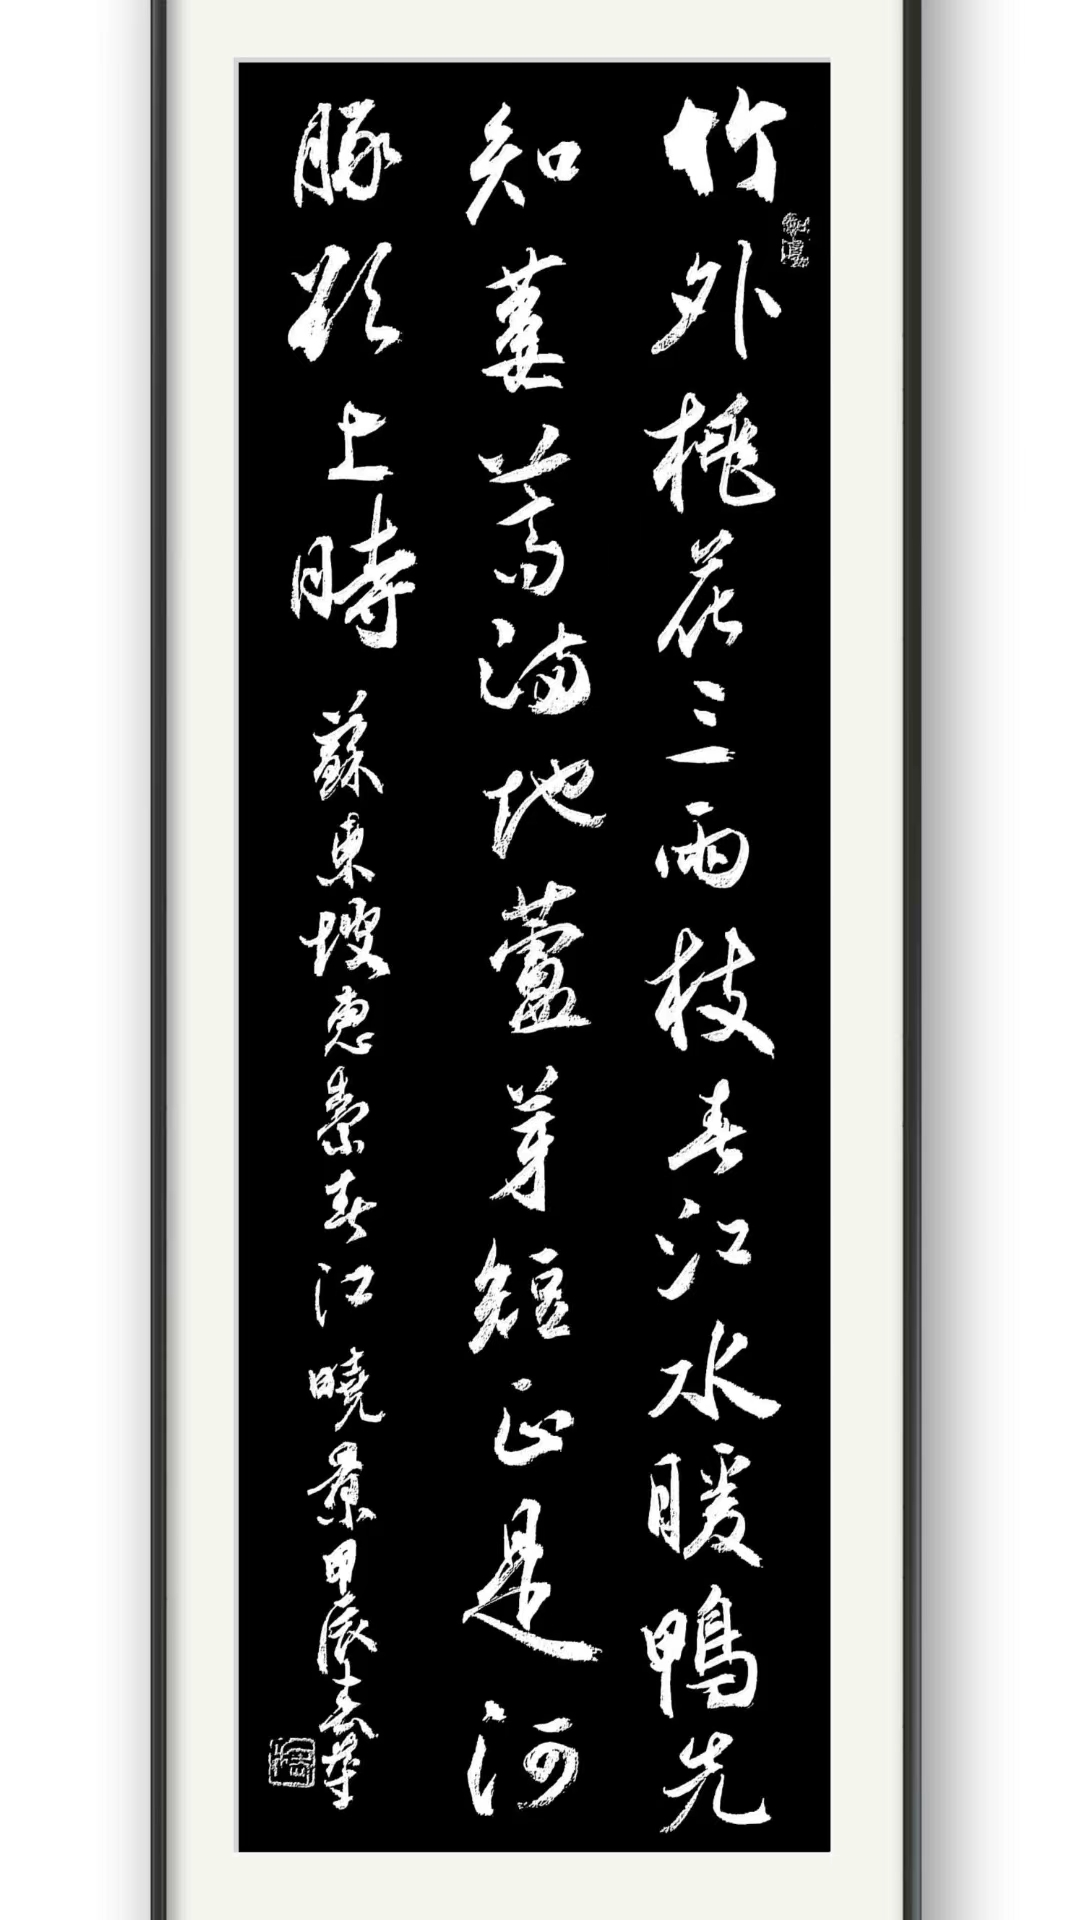 竹外桃花三兩枝春江水暖鴨先
知蔞蒿滿地蘆芽短正是河
豚欲上時
蘇東坡惠崇春江曉景甲辰